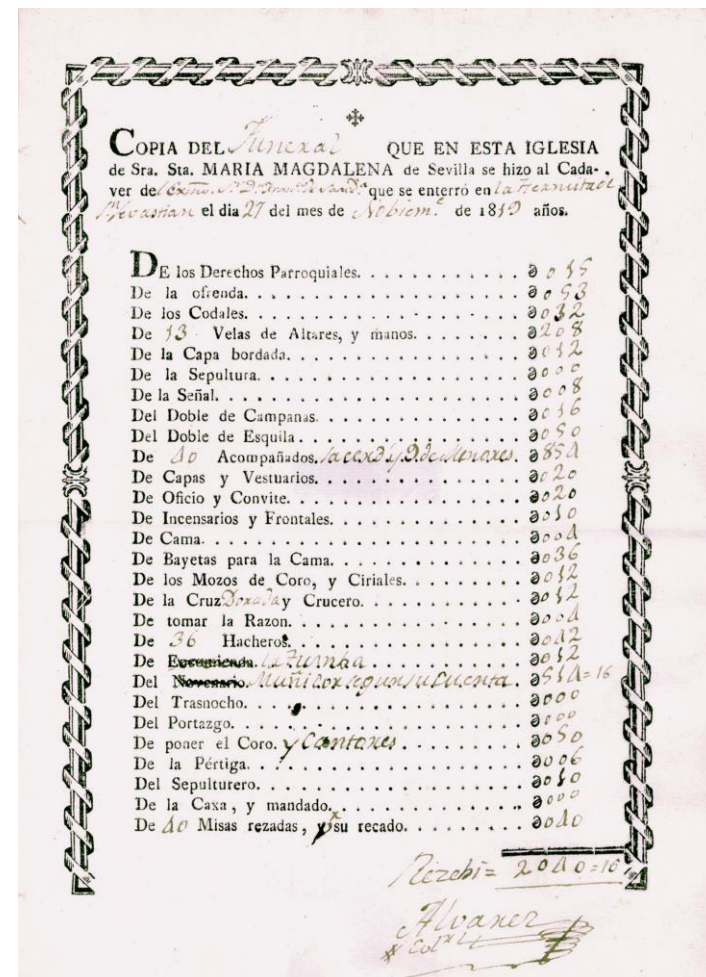 COPIA DEL Funeral QUE EN ESTA IGLESIA
de Sra. Sta. MARIA MAGDALENA de Sevilla se hizo al Cada-
ver de que se enterró en la Hermita de
Sn Sevastian el dia 27 del mes de Nobieme de 1819 años.
DE los Derechos Parroquiales. . . . . . . . . . . . ∂015
De la ofrenda. . . . . . . . . . . . . . . . . . . . ∂053
De los Codales. . . . . . . . . . . . . . . . . . . ∂032
De 13 Velas de Altares, y manos. . . . . . . . ∂208
De la Capa bordada. . . . . . . . . . . . . . . . . ∂012
De la Sepultura. . . . . . . . . . . . . . . . . . . ∂000
De la Señal. . . . . . . . . . . . . . . . . . . . . ∂008
Del Doble de Campanas. . . . . . . . . . . . . . . ∂016
Del Doble de Esquila . . . . . . . . . . . . . . . . ∂050
De 40 Acompañados. Sacerds y D. de Menores. ∂854
De Capas y Vestuarios. . . . . . . . . . . . . . . ∂020
De Oficio y Convite. . . . . . . . . . . . . . . . . ∂020
De Incensarios y Frontales. . . . . . . . . . . . . ∂010
De Cama. . . . . . . . . . . . . . . . . . . . . . . ∂004
De Bayetas para la Cama. . . . . . . . . . . . . . ∂036
De los Mozos de Coro, y Ciriales. . . . . . . . . ∂012
De la Cruz Dorada y Crucero. . . . . . . . . . . . ∂012
De tomar la Razon. . . . . . . . . . . . . . . . . ∂004
De 36 Hacheros. . . . . . . . . . . . . . . . . . ∂042
De la Tumba . . . . . . . . . . . . . . . ∂012
Del Novenario. Muñidor segun su Cuenta . ∂514=16
Del Trasnocho. . . . . . . . . . . . . . . . . . . . ∂000
Del Portazgo. . . . . . . . . . . . . . . . . . . . . ∂000
De poner el Coro. y Cantores . . . . . . . . . . . ∂050
De la Pértiga. . . . . . . . . . . . . . . . . . . . . ∂006
Del Sepulturero. . . . . . . . . . . . . . . . . . . ∂010
De la Caxa, y mandado. . . . . . . . . . . . . . . ∂000
De 40 Misas rezadas, y su recado. . . . . . . . . ∂040
Rezebi= 2040=16
Alvarez